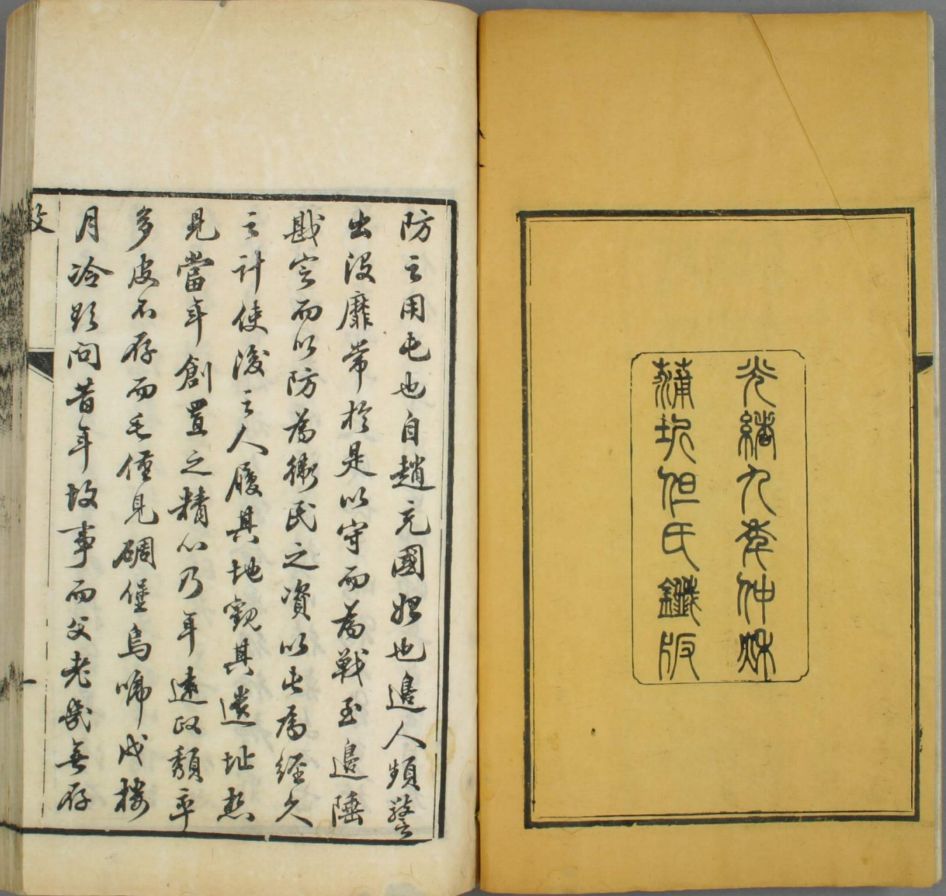 光緒九年仲秋
蒲圻但氏鑯版
防之用屯也自趙充國始也邊人頻警
出沒靡常於是以守而為戰至邊陲
戡定而以防為衛民之資以屯為經久
之計使後之人履其地觀其遺址想
見當年創置之精心乃年遠政頹率
多皮不存而毛僅見碉堡烏啼戍樓
月冷欲問昔年故事而父老幾無存